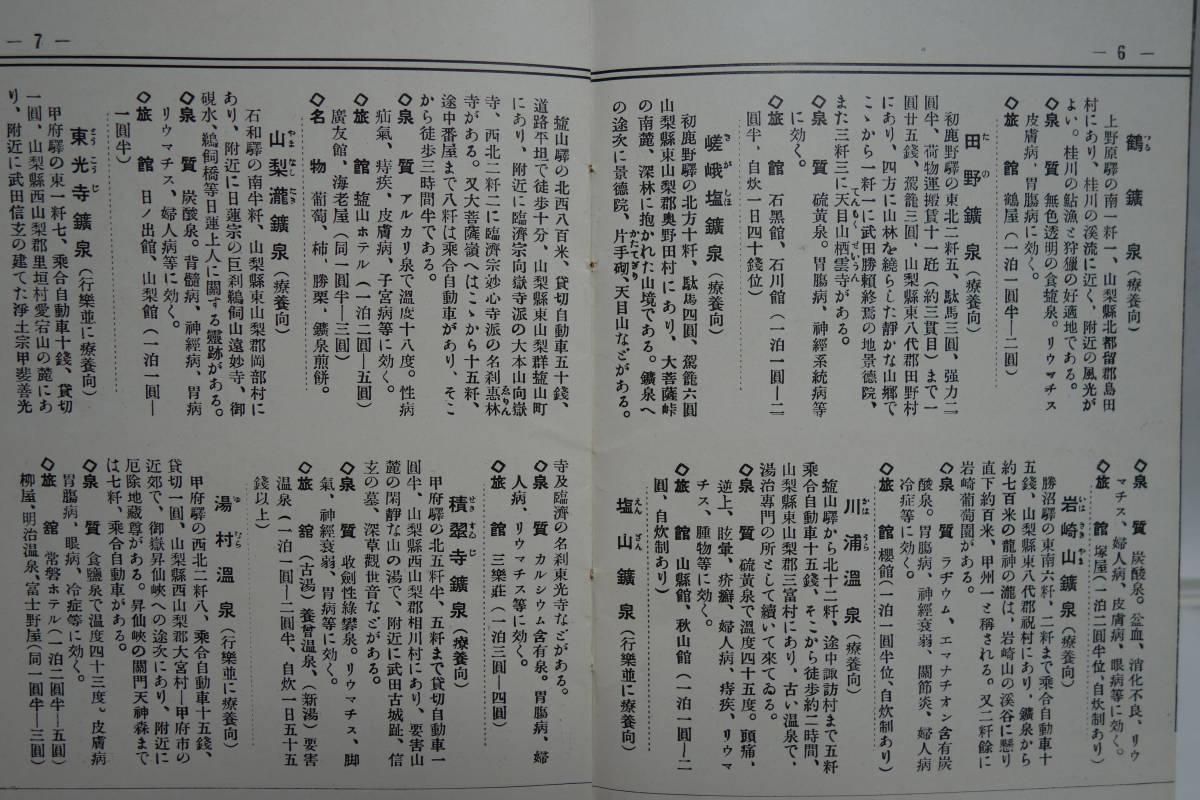 — 6 —
鶴鑛泉(療養向)
上野原驛の南一粁一、山梨縣北都留郡島田
村にあり、桂川の溪流に近く、附近の風光が
よい。桂川の鮎漁と狩獵の好適地である。
◇泉質 無色透明の食塩泉。リウマチス
皮膚病、胃腸病に効く。
◇旅館 鶴屋(一泊一圓半—二圓)
田野鑛泉(療養向)
初鹿野驛の東北二粁五、駄馬三圓、强力二
圓半、荷物運搬賃十一瓩(約三貫目)まで一
圓廿五錢、駕籠三圓、山梨縣東八代郡田野村
にあり、四方に山林を繞らした靜かな山鄕で
こゝから一粁一に武田勝賴終焉の地景德院、
また三粁三に天目山栖雲寺がある。
◇泉質 硫黃泉。胃腸病、神經系統病等
に効く。
◇旅館 石黑館、石川館(一泊一圓—二
圓半、自炊一日四十錢位)
嵯峨塩鑛泉(療養向)
初鹿野驛の北方十粁、駄馬四圓、駕籠六圓
山梨縣東山梨郡奧野田村にあり、大菩薩峠
の南麓、深林に抱かれた山境である。鑛泉へ
の途次に景德院、片手砌、天目山などがある。
◇泉質 炭酸泉。盆血、消化不良、リウ
マチス、婦人病、皮膚病、眼病等に効く。
◇旅館 塚屋(一泊二圓半位、自炊制あり)
岩崎山鑛泉(療養向)
勝沼驛の東南六粁、二粁まで乘合自動車十
五錢、山梨縣東八代郡祝村にあり、鑛泉から
約七百米の龍神の瀧は、岩崎山の溪谷に懸り
直下約百米、甲州一と稱される。又二粁餘に
岩崎葡萄園がある。
◇泉質 ラヂウム、エマナチオン含有炭
酸泉。胃腸病、神經衰弱、關節炎、婦人病
冷症等に効く。
◇旅館 櫻館(一泊一圓半位、自炊制あり)
川浦溫泉(療養向)
塩山驛から北十二粁、途中諏訪村まで五粁
乘合自動車十五錢、そこから徒步約二時間、
山梨縣東山梨郡三富村にあり、古い溫泉で、
湯治專門の所として續いて來てゐる。
◇泉質 硫黃泉で溫度四十五度。頭痛、
逆上、眩暈、疥癬、婦人病、痔疾、リウマ
チス、腫物等に効く。
◇旅館 山縣館、秋山館(一泊一圓—二
圓、自炊制あり)
塩山鑛泉(行樂並に療養向)
— 7 —
塩山驛の北西八百米、貸切自動車五十錢、
道路平坦で徒步十分、山梨縣東山梨群塩山町
にあり、附近に臨濟宗向嶽寺派の大本山向嶽
寺、西北二粁二に臨濟宗妙心寺派の名刹惠林
寺がある。又大菩薩嶺へはこゝから十五粁、
途中番屋まで八粁は乘合自動車があり、そこ
から徒步三時間半である。
◇泉質 アルカリ泉で溫度十八度。性病
疝氣、痔疾、皮膚病、子宮病等に効く。
◇旅館 塩山ホテル(一泊二圓—五圓)
廣友館、海老屋(同一圓半—三圓)
◇名物 葡萄、柿、勝栗、鑛泉煎餅。
山梨瀧鑛泉(療養向)
石和驛の南半粁、山梨縣東山梨郡岡部村に
あり、附近に日蓮宗の巨刹鵜飼山遠妙寺、御
硯水、鵜飼橋等日蓮上人に關する靈跡がある。
◇泉質 炭酸泉。脊髓病、神經病、胃病
リウマチス、婦人病等に効く。
◇旅館 日ノ出館、山梨館(一泊一圓—
一圓半)
東光寺鑛泉(行樂並に療養向)
甲府驛の東一粁七、乘合自動車十錢、貸切
一圓、山梨縣西山梨郡里垣村愛宕山の麓にあ
り、附近に武田信玄の建てた淨土宗甲斐善光
寺及臨濟の名刹東光寺などがある。
◇泉質 カルシウム含有泉。胃腸病、婦
人病、リウマチス等に効く。
◇旅館 三樂莊(一泊三圓—四圓)
積翠寺鑛泉(療養向)
甲府驛の北五粁半、五粁まで貸切自動車一
圓半、山梨縣西山梨郡相川村にあり、要害山
麓の閑靜な山の湯で、附近に武田古城趾、信
玄の墓、深草觀世音などがある。
◇泉質 收劍性綠礬泉。リウマチス、脚
氣、神經衰弱、胃病等に効く。
◇旅館 (古湯)養曾溫泉、(新湯)要害
溫泉(一泊一圓—二圓半、自炊一日五十五
錢以上)
湯村溫泉(行樂並に療養向)
甲府驛の西北二粁八、乘合自動車十五錢、
貸切一圓、山梨縣西山梨郡大宮村—甲府市の
近郊で、御嶽昇仙峽への途次にあり、附近に
厄除地藏尊がある。昇仙峽の關門天神森まで
は七粁、乘合自動車がある。
◇泉質 食鹽泉で溫度四十三度。皮膚病
胃腸病、眼病、冷症等に効く。
◇旅館 常磐ホテル(一泊二圓半—五圓)
柳屋、明治溫泉、富士野屋(同一圓半—三圓)